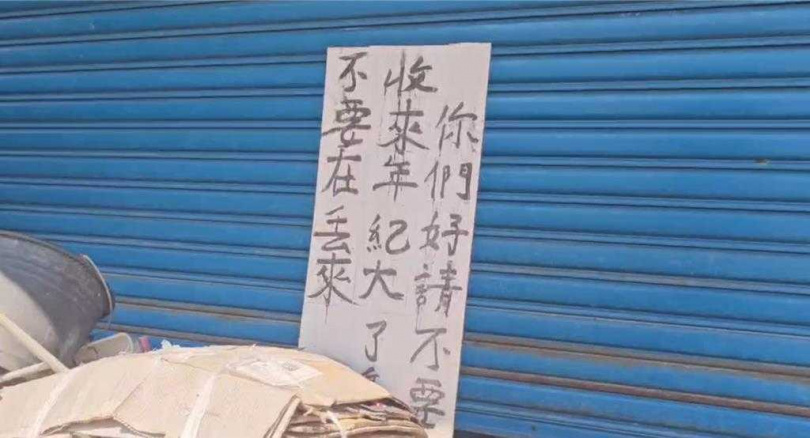 你們好請不要
收來年紀大了
不要在丟來